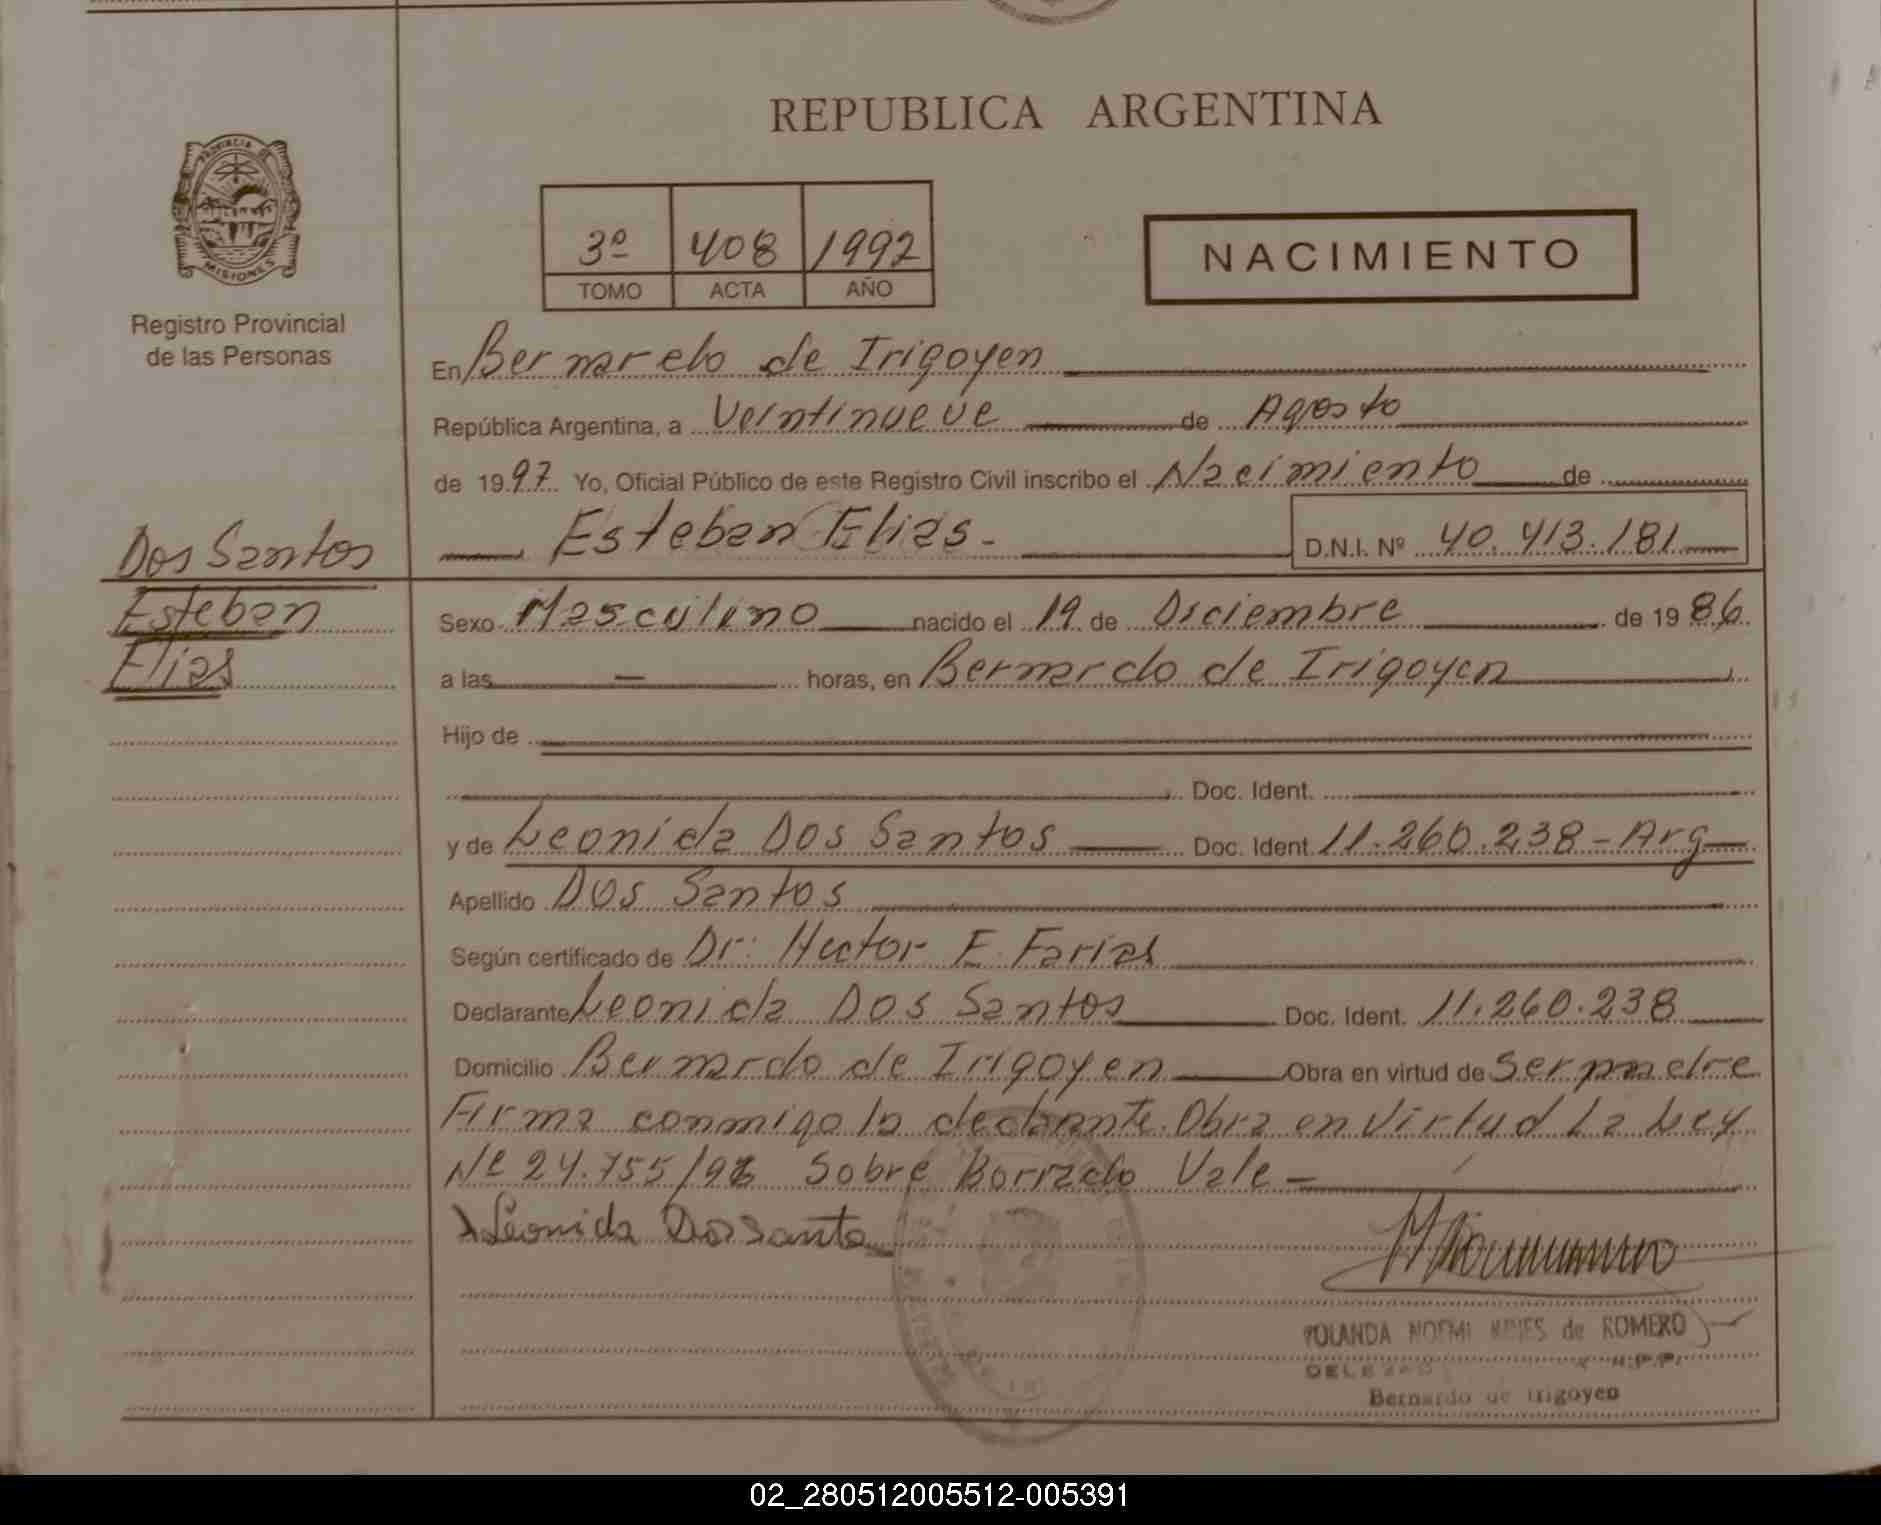 REPUBLICA ARGENTINA
PROVINCIA DE
MISIONES
Registro Provincial
de las Personas
3º 408 1992
TOMO ACTA AÑO
NACIMIENTO
En Bernardo de Irigoyen
República Argentina, a Veintinueve de Agosto
de 1997 Yo, Oficial Público de este Registro Civil inscribo el Nacimiento de
Esteban Elias.- D.N.I. Nº 40.413.181
Dos Santos
Esteban
Elias
Sexo Masculino nacido el 19 de Diciembre de 1986
a las — horas, en Bernardo de Irigoyen
Hijo de
Doc. Ident.
y de Leonida Dos Santos Doc. Ident. 11.260.238-Arg
Apellido Dos Santos
Según certificado de Dr: Hector E. Farias
Declarante Leonida Dos Santos Doc. Ident. 11.260.238
Domicilio Bernardo de Irigoyen Obra en virtud de Ser madre
Firma conmigo la declarante. Obra en Virtud La Ley
Nº 24.755/96 Sobre Borrado Vale -
Leonida Dos Santo
YOLANDA NOEMI de ROMERO
Bernardo de Irigoyen
02_280512005512-005391